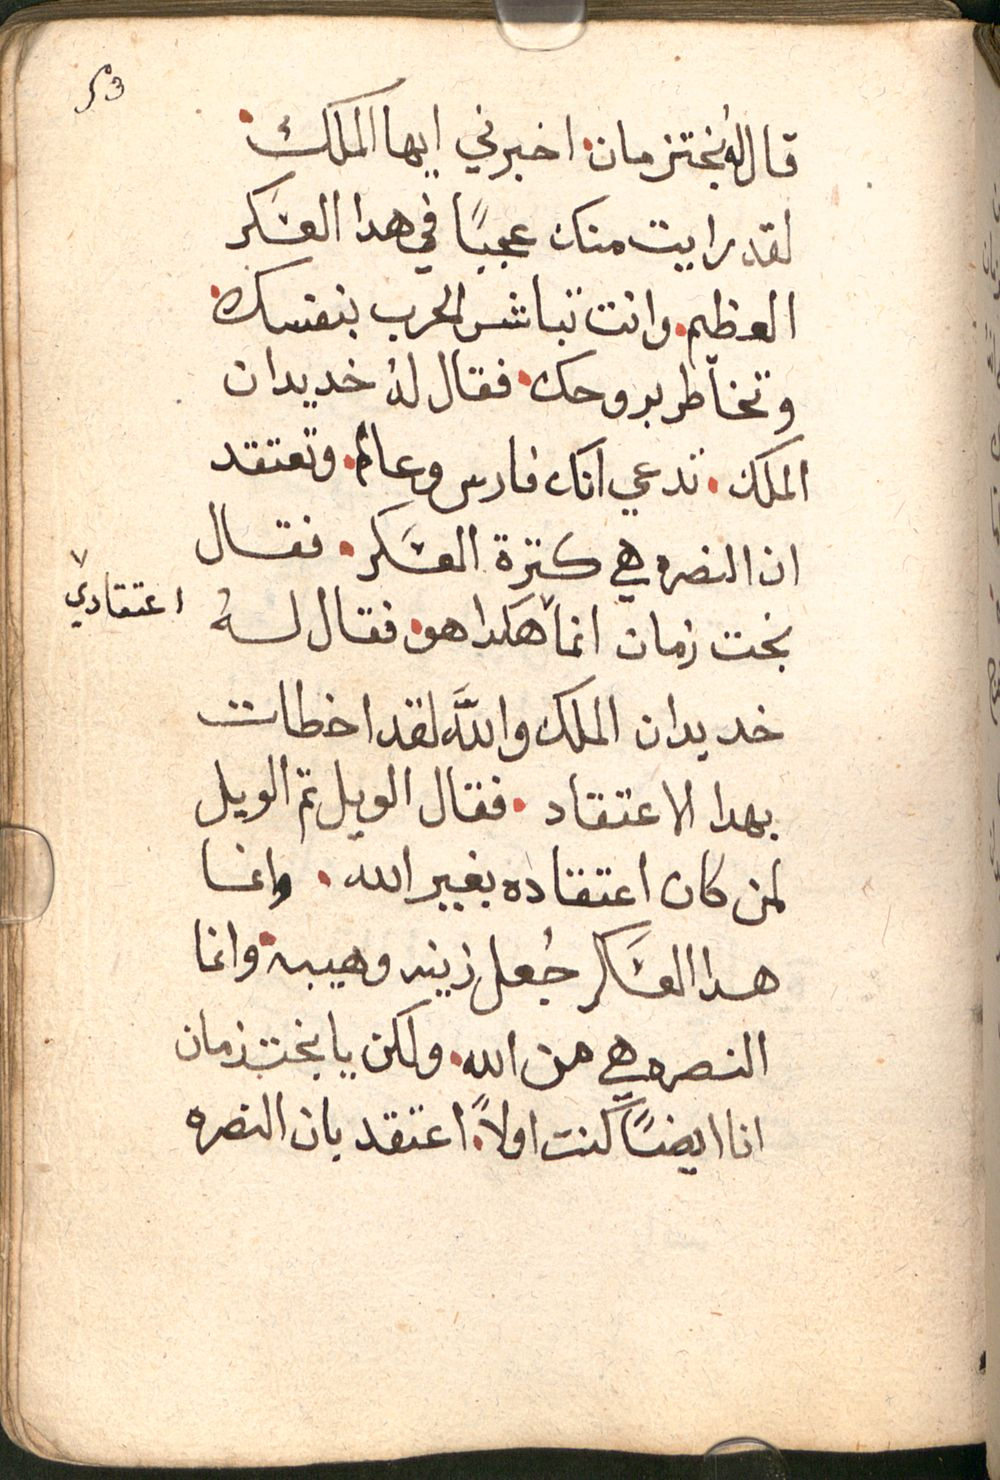 53
قال لهُ بُختزمان. اخبرني ايها الملك.
لقد رايت منك عجبًا في هدا العَسكر
العظيم. وانت تباشر الحرب بنفسك.
وتخاطر بروحك. فقال لهُ خديدان
الملك. تدعي انك فارس وعالم. وتعتقد
ان النصره هي كترة العَسكر. فقال
بخت زمان انما هكدا هو. فقال لهُ
اعتقادي
خديدان الملك والله لقد اخطات
بهدا الاعتقاد. فقال الويل تمّ الويل
لمن كان اعتقاده بغير الله. وانما
هدا العَسكر جُعل زينه وهيبه. وانما
النصره هي من الله. ولكن يا بخت زمان
انا ايضًا كنت اولاً. اعتقد بان النصره